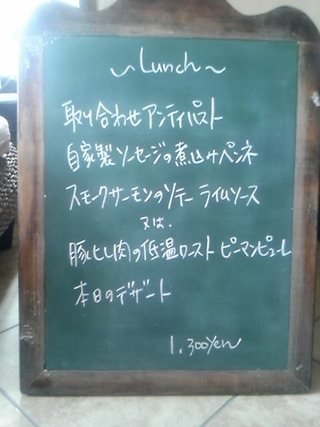 ~Lunch~
取り合わせアンティパスト
自家製ソーセージの煮込みペンネ
スモークサーモンのソテー ライムソース
又は、
豚ヒレ肉の低温ロースト ピーマンピューレ
本日のデザート
1,300yen